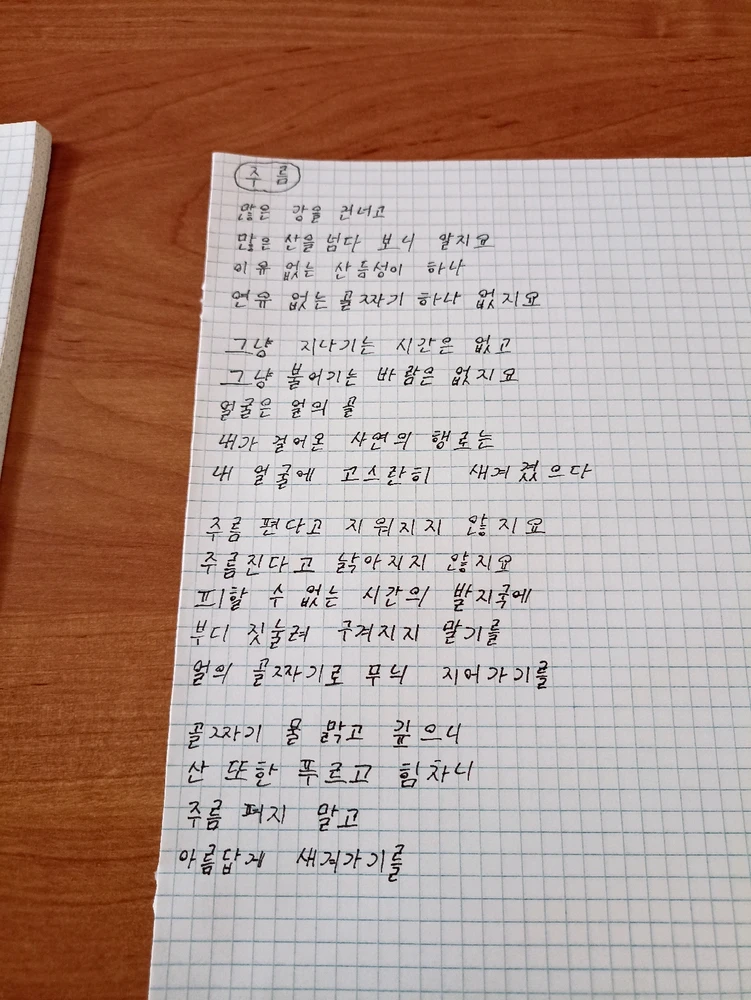 주름
많은 강을 건너고
많은 산을 넘다 보니 알지요
이유 없는 산등성이 하나
연유 없는 골짜기 하나 없지요
그냥 지나가는 시간은 없고
그냥 불어가는 바람은 없지요
얼굴은 얼의 골
내가 걸어온 사연의 행로는
내 얼굴에 고스란히 새겨졌으다
주름 편다고 지워지지 않지요
주름진다고 낡아지지 않지요
피할 수 없는 시간의 발자국에
부디 짓눌려 구겨지지 말기를
얼의 골짜기로 무늬 지어가기를
골짜기 물 맑고 깊으니
산 또한 푸르고 힘차니
주름 펴지 말고
아름답게 새겨가기를